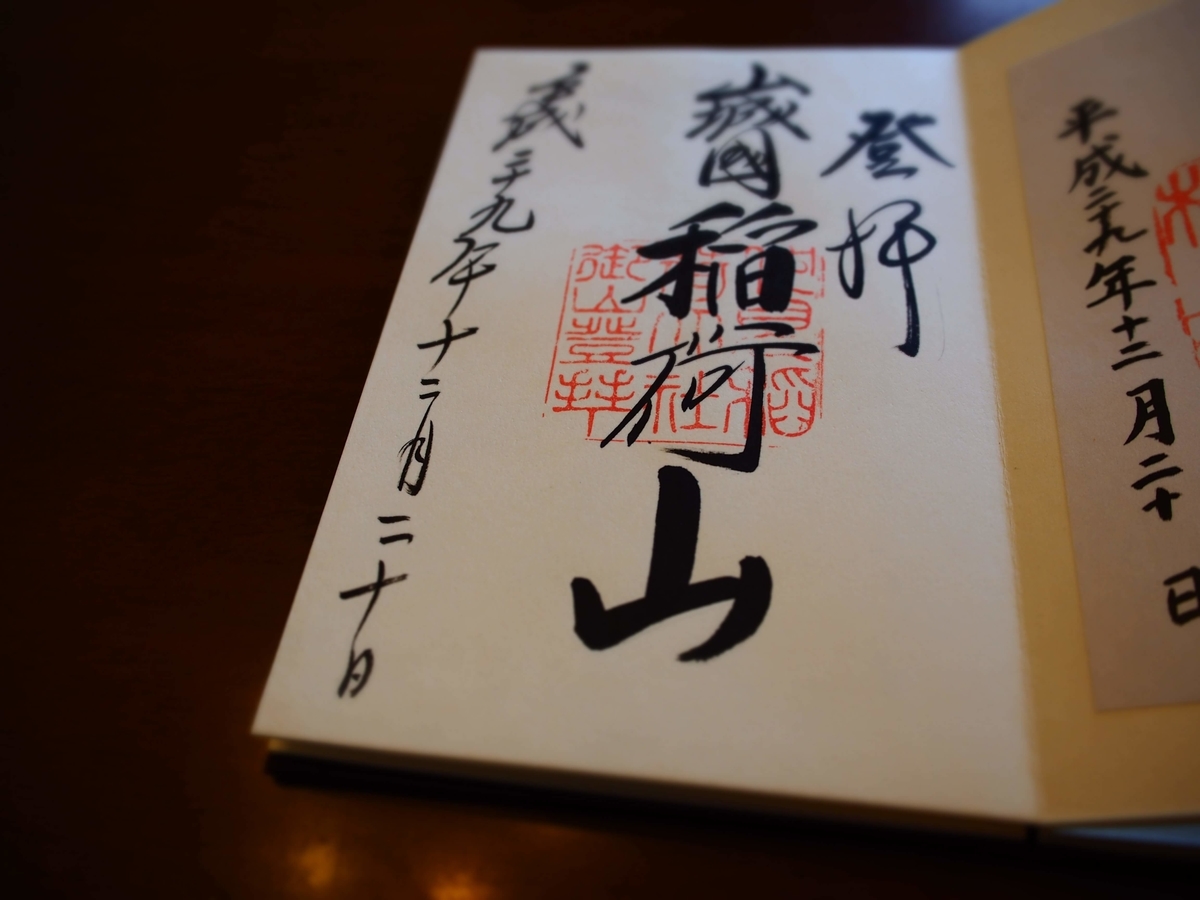 平成二十九年十二月二十日
登拝
山城國稲荷山
平成二十九年十二月二十日
御山登拝